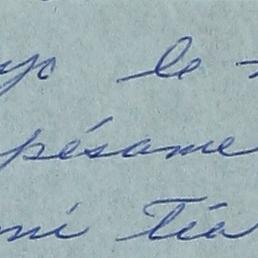 le
pésame
mi Tía